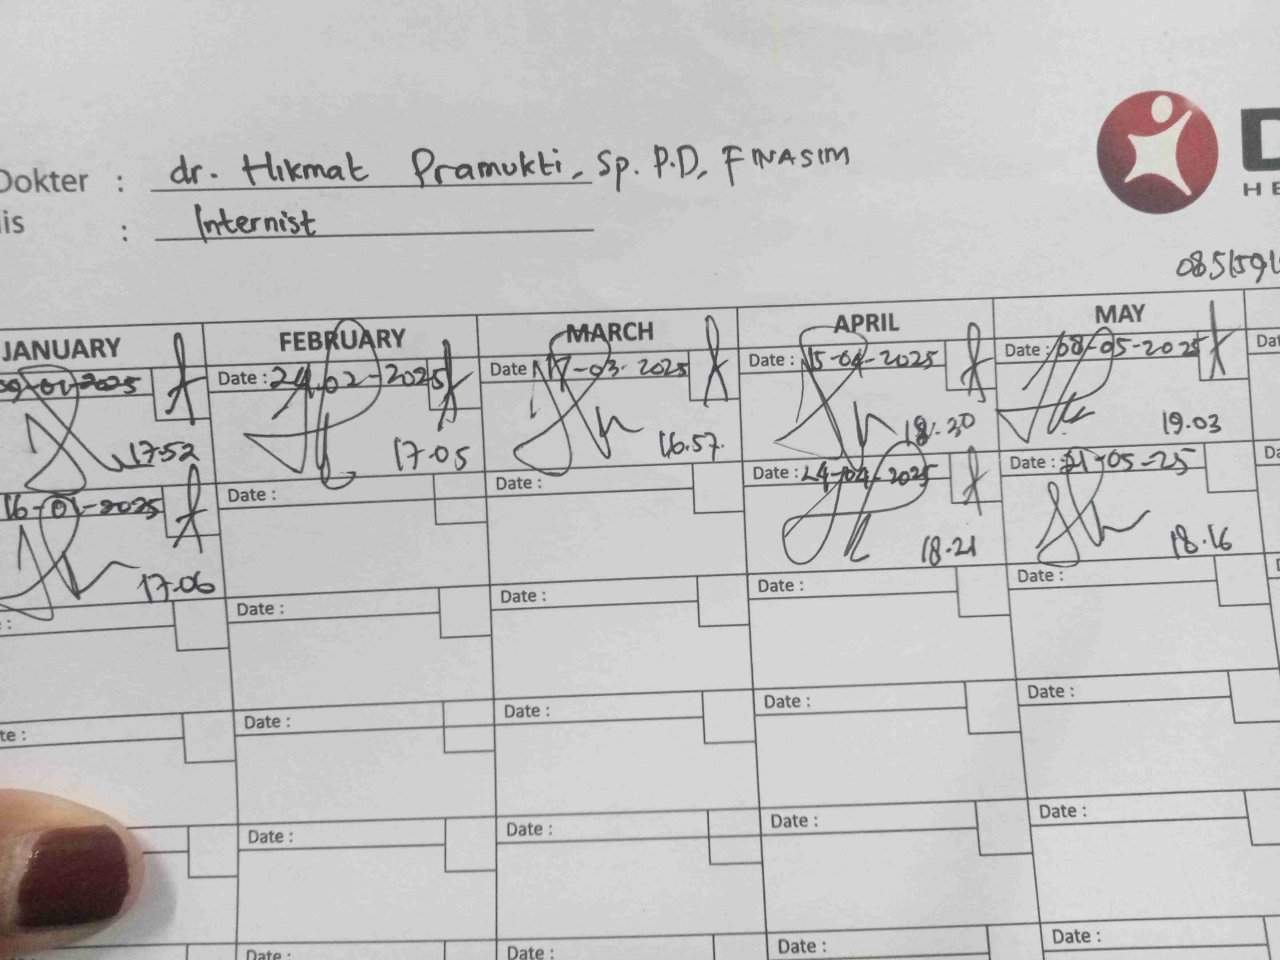 Dokter : dr. Hikmat Pramukti, Sp. P.D, FINASIM
is : Internist
D
HE
JANUARY FEBRUARY MARCH APRIL MAY
09-01-2025 Date : 24-02-2025 Date : 17-03-2025 Date : 15-04-2025 Date : 08-05-2025 Dat
17.52 17.05 16.57 18.30 19.03
16-01-2025 Date : Date : Date : 24-04-2025 Date : 21-05-25 Da
17.06 18.21 18.16
: Date : Date : Date : Date :
te : Date : Date : Date : Date :
Date : Date : Date : Date :
Date : Date : Date : Date :